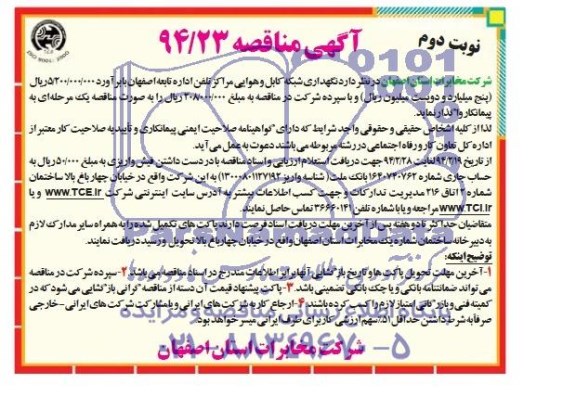 نوبت دوم
آگهی مناقصه ۹۴/۲۳
شرکت مخابرات استان اصفهان در نظر دارد نگهداری شبکه کابل و هوایی مراکز تلفن اداره تابعه اصفهان با برآورد ۵/۲۰۰/۰۰۰/۰۰۰ ریال
(پنج میلیارد و دویست میلیون ریال) و با سپرده شرکت در مناقصه به مبلغ ۲۰۸/۰۰۰/۰۰۰ ریال را به صورت مناقصه یک مرحله‌ای به
پیمانکار واگذار نماید.
لذا از کلیه اشخاص حقیقی و حقوقی واجد شرایط که دارای گواهینامه صلاحیت ایمنی پیمانکاری و تأییدیه صلاحیت کار معتبر از
اداره کل تعاون کار و رفاه اجتماعی در رشته مربوطه می باشند دعوت به عمل می آید.
از تاریخ ۹۴/۲/۱۹ لغایت ۹۴/۲/۲۸ جهت دریافت استعلام ارزیابی و اسناد مناقصه با در دست داشتن فیش واریزی به مبلغ ۵۰/۰۰۰ ریال به
حساب جاری شماره بانک ملت (شناسه واریز) به این شرکت واقع در خیابان چهارباغ بالا ساختمان
شماره ۲ اتاق ۲۱۶ مدیریت تدارکات و جهت کسب اطلاعات بیشتر به آدرس سایت اینترنتی شرکت WWW.TCE.Ir و یا
WWW.TCI.Ir مراجعه و یا با شماره تلفن ۳۶۶۶۰۱۴۱ تماس حاصل نمایند.
متقاضیان حداکثر تا دو هفته پس از آخرین مهلت دریافت اسناد فرصت دارند پاکت های تکمیل شده را به همراه سایر مدارک لازم
به دبیرخانه ساختمان شماره یک مخابرات استان اصفهان واقع در خیابان چهارباغ بالا تحویل و رسید دریافت نمایند.
توضیح اینکه:
۱- آخرین مهلت تحویل پاکت ها و تاریخ بازگشایی آنها برابر اطلاعات مندرج در اسناد مناقصه می باشد. ۲- سپرده شرکت در مناقصه
می تواند ضمانتنامه بانکی و یا چک بانکی تضمینی باشد. ۳- پاکت پیشنهاد قیمت آن دسته از مناقصه گرانی بازگشایی می شود که در
کمیته فنی و بازرگانی امتیاز لازم را کسب کرده باشند. ۴- ارجاع کار به شرکت های ایرانی و یا مشارکت شرکت های ایرانی - خارجی
صرفا به شرط داشتن حداقل ۵۱٪ سهم ارزشی کار برای طرف ایرانی میسر خواهد بود.
شرکت مخابرات استان اصفهان
پایگاه اطلاع رسانی مناقصه و مزایده
۰۲۱-۸۸۳۴۹۶۷۰-۵